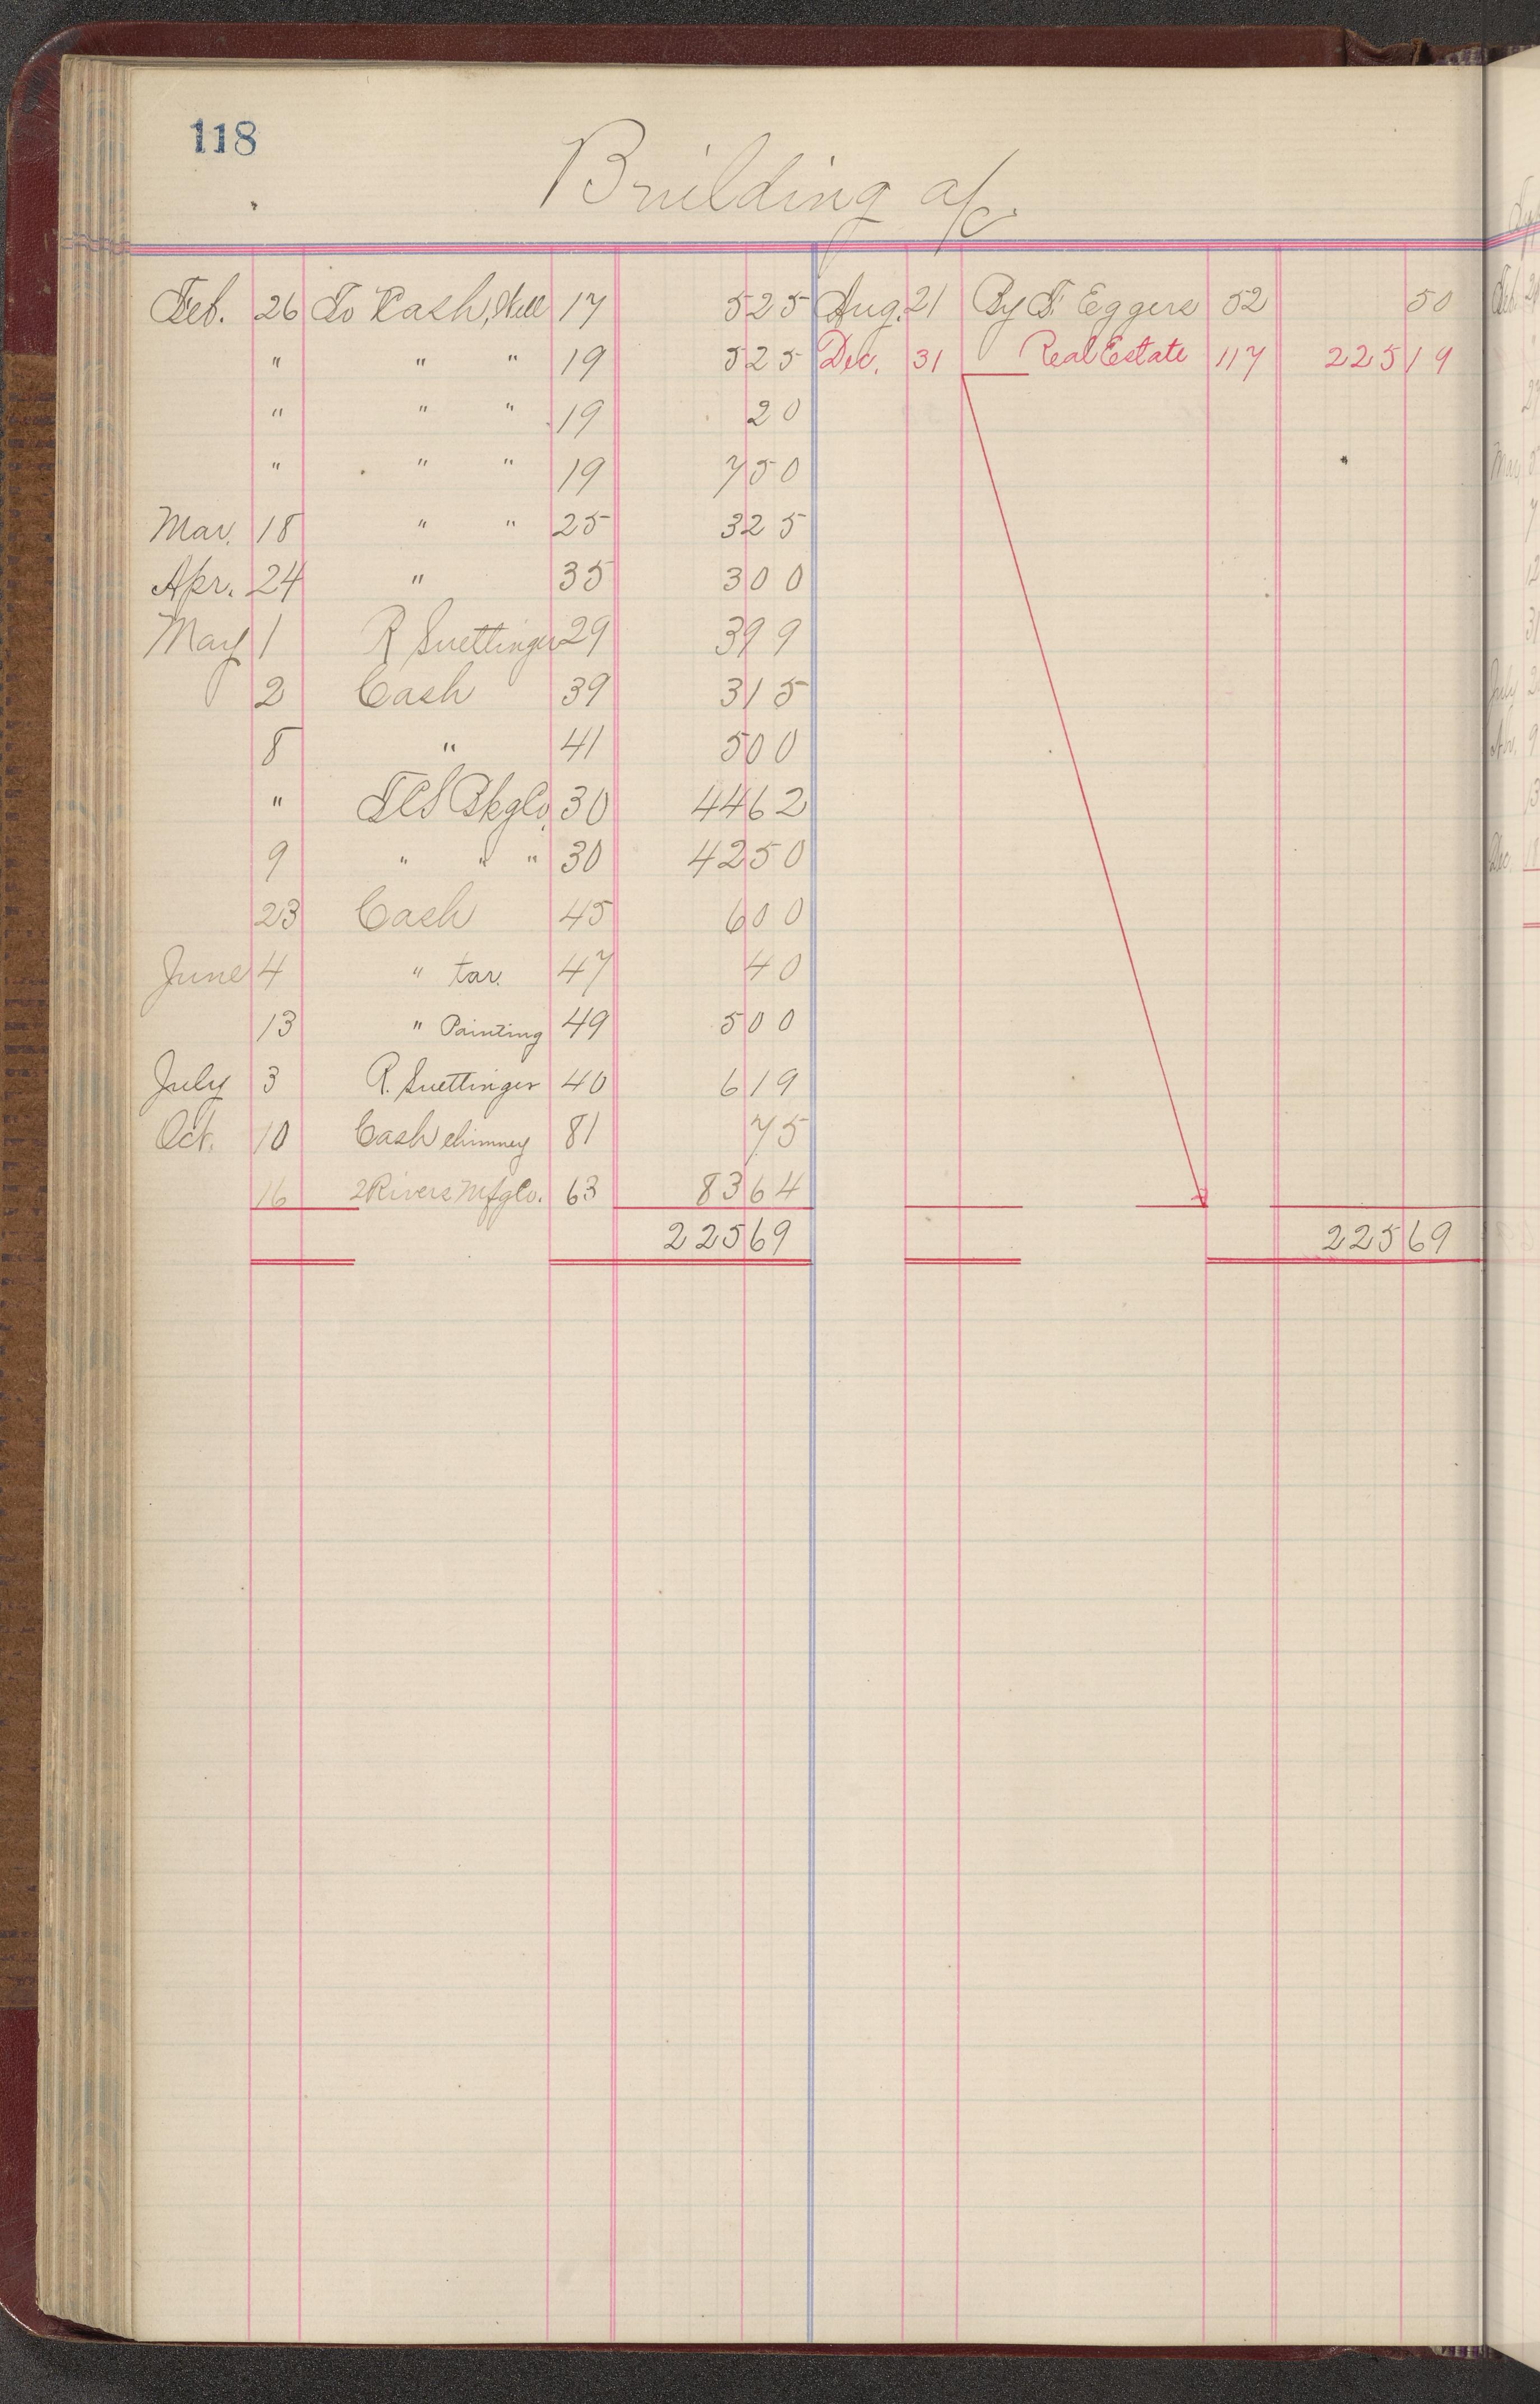 118
Building a/c.
Feb. 26 To Cash, Well 17 525 Aug. 21 By F. Eggers 52 50
" " " 19 525 Dec. 31 Real Estate 117 22519
" " " 19 20
" " " 19 750
Mar. 18 " " 25 325
Apr. 24 " 35 300
May 1 R Suettinger 29 399
2 Cash 39 315
8 " 41 500
" Bkg Co. 30 4462
9 " " " 30 4250
23 Cash 45 600
June 4 " tar. 47 40
13 " Painting 49 500
July 3 R. Suettinger 40 619
Oct. 10 Cash chimney 81 75
16 2 Rivers Mfg Co. 63 8364
22569 22569